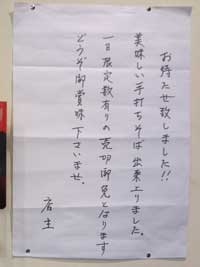 お待たせ致しました!!
美味しい手打ちそば出来上りました。
一日限定数有りの売切御免となります
どうぞ御賞味下さいませ。
店主